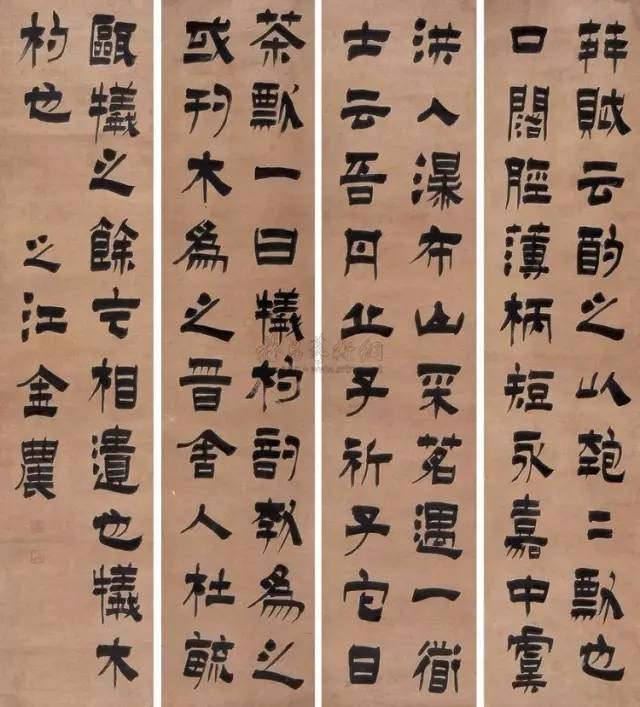 荈賦云酌之以匏二瓢也
口闊脛薄柄短永嘉中虞
洪入瀑布山采茗遇一道
士云吾丹丘子祈子它日
茶瓢一曰犧杓剖瓠爲之
或刊木爲之晉舍人杜毓
甌犧之餘乞相遺也犧木
杓也 之江金農